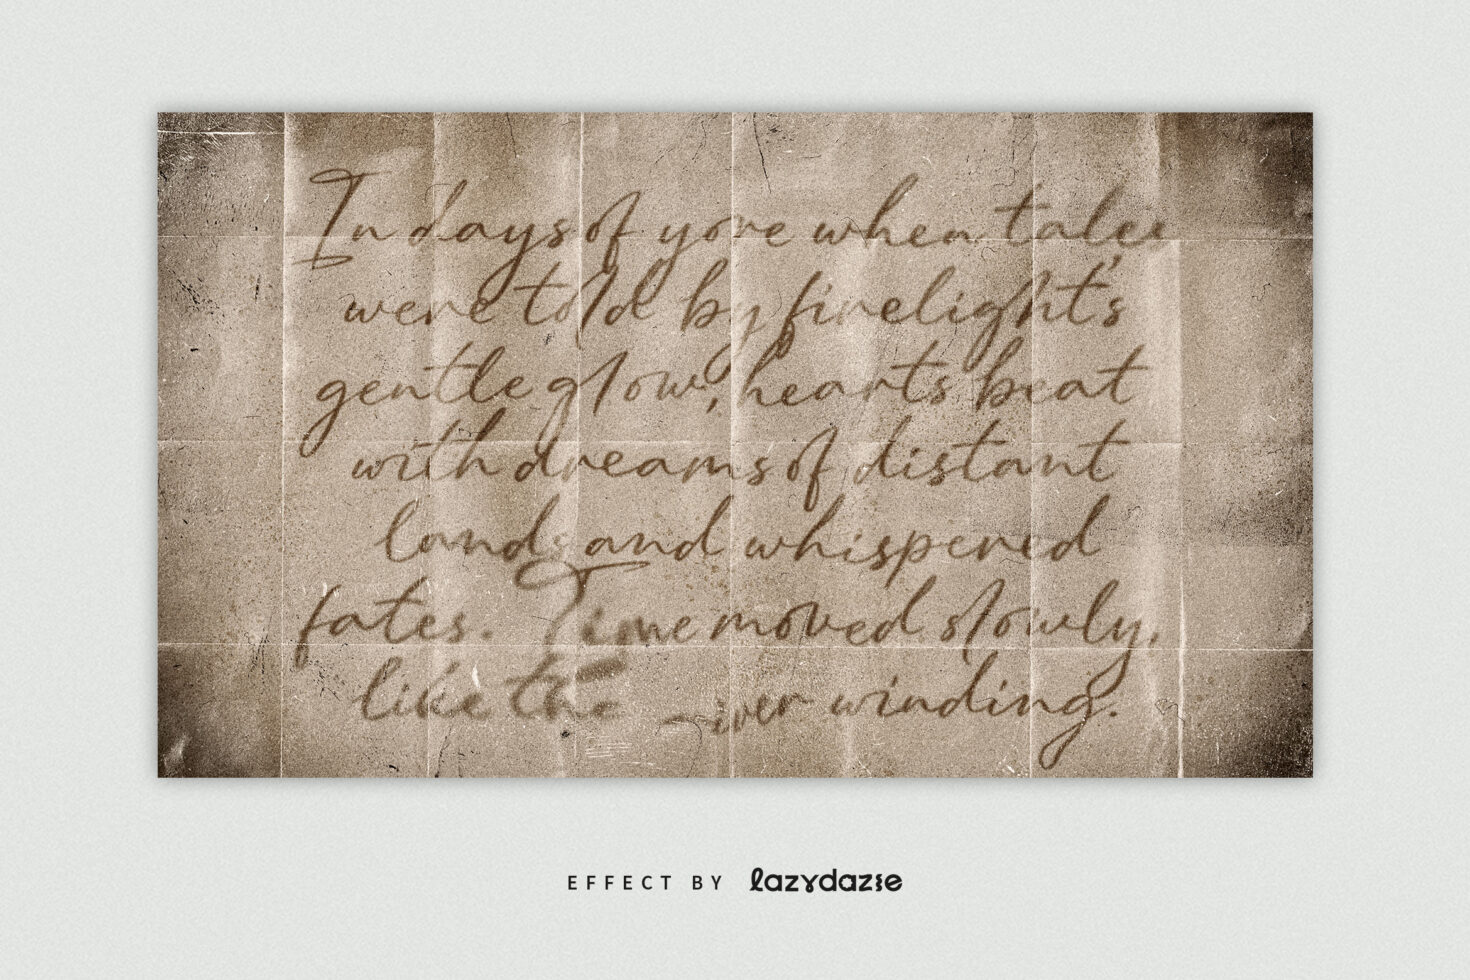 In days of yore when tales
were told by firelight's
gentle glow, hearts beat
with dreams of distant
lands and whispered
fates. Time moved slowly,
like the winding.
EFFECT BY lazydazie